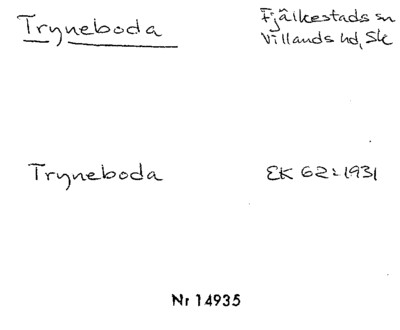 Tryneboda
Fjälkestads sn
Villands hd, Sk
Tryneboda
EK 62:1931
Nr 14935